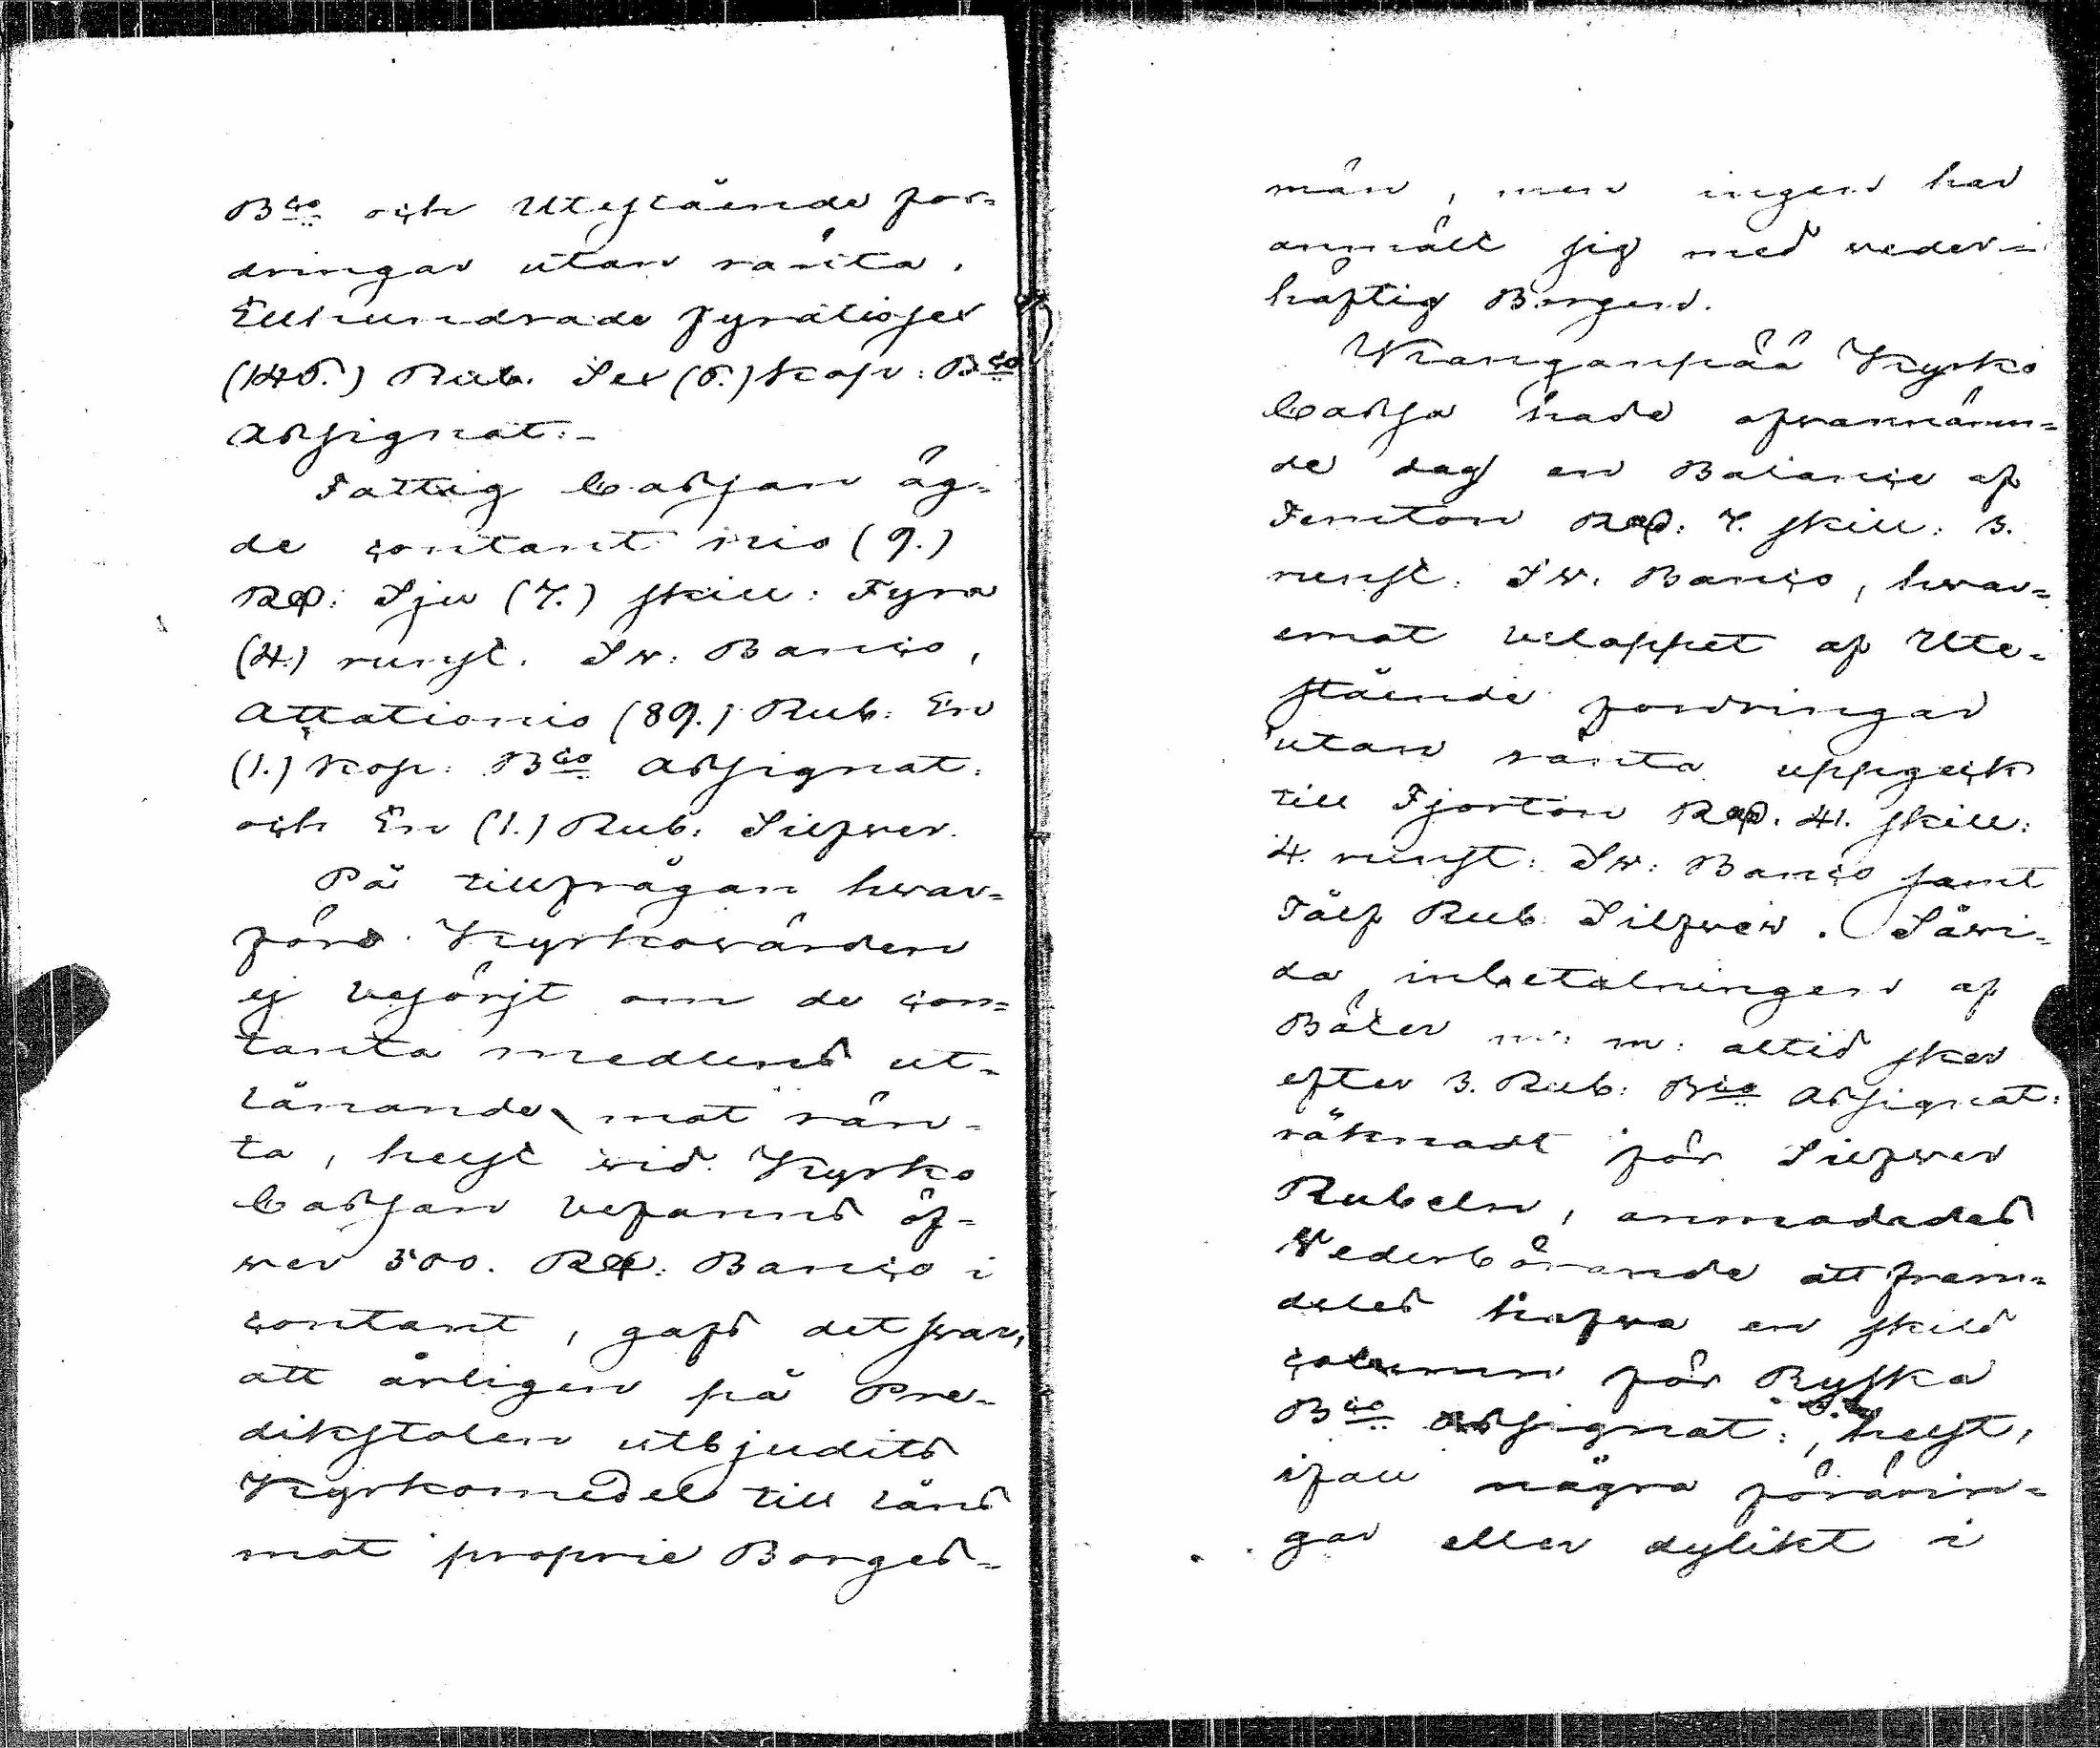 Bco och Utestående for-
dringar utan ränta,
Etthundrade fyratiosex
(146.) Rub. Sex (6.) Kop: Bco
Assignat:-
Fattig Cassan äg-
de contant nio (9.)
Rd: Sju (7.) skill: Fyra
(4.) runst. Sw: Banco,
Åttationio (89.) Rub: En
(1.) Kop: Bco Assignat:
och En (1.) Rub: Silfwer.
På tillfrågan hwar-
före Kyrkowärden
ej besörjt om de con-
tanta medlens ut-
lånande mot rän-
ta, helst wid Kyrko
Cassan befanns öf-
wer 500. Rd: Banco i
contant, gafs det swar,
att årligen på Pre-
dikstolen utbjudits
Kyrkomedel till låns
mot proprie Borges-
män, men ingen har
anmält sig med weder-
häftig Borgen.
Kanganpää Kyrko
Cassa hade ofwannämn-
de dag en Balance af
Femton Rd: 7. skill: 3.
runst: Sw. Banco, hwar-
emot beloppet af Ute-
stående fordringar
utan ränta uppgick
till Fjorton Rd. 41. skill:
4. runst: Sw: Banco samt
Tålf Rub Silfwer. Såwi-
da inbetalningen af
Böter m: m: altid sker
efter 3. Rub: Bco Assignat:
räknadt för Silfwer
Rubeln, anmodades
Wederbörande att fram-
deles hafwa en skild
column för Ryska
Bco Assignat:, helst,
ifall några förärin-
gar eller dylikt i